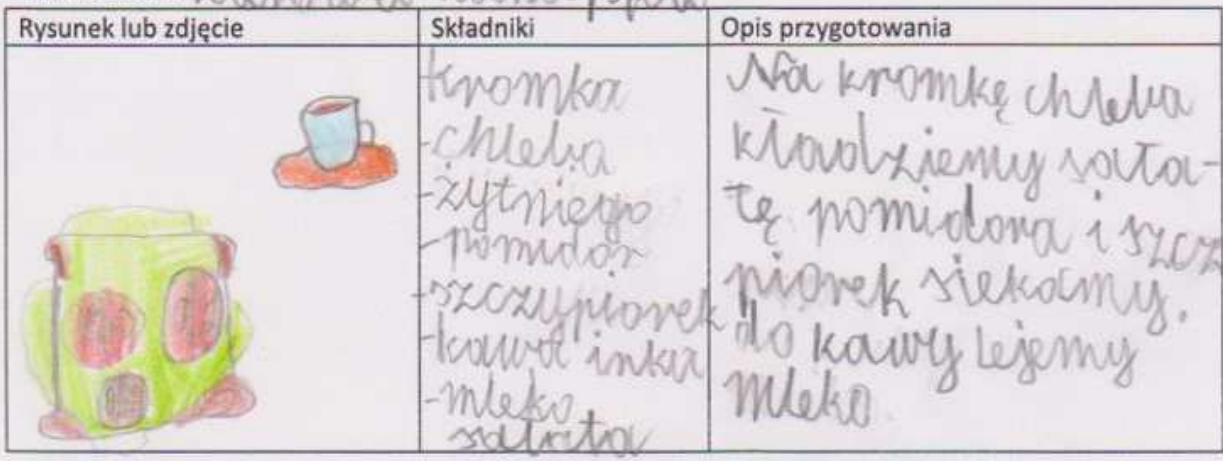 Rysunek lub zdjęcie
Składniki
Opis przygotowania
kromka
chleba
-żytniego
-pomidor
-szczypiorek
-kawa inka
-mleko
sałata
Na kromkę chleba
kładziemy sała-
tę pomidora i szcz
piorek siekamy.
do kawy lejemy
mleko.